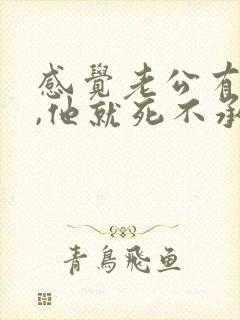 感覺老公有
,他就死不承
青鳥飛鱼